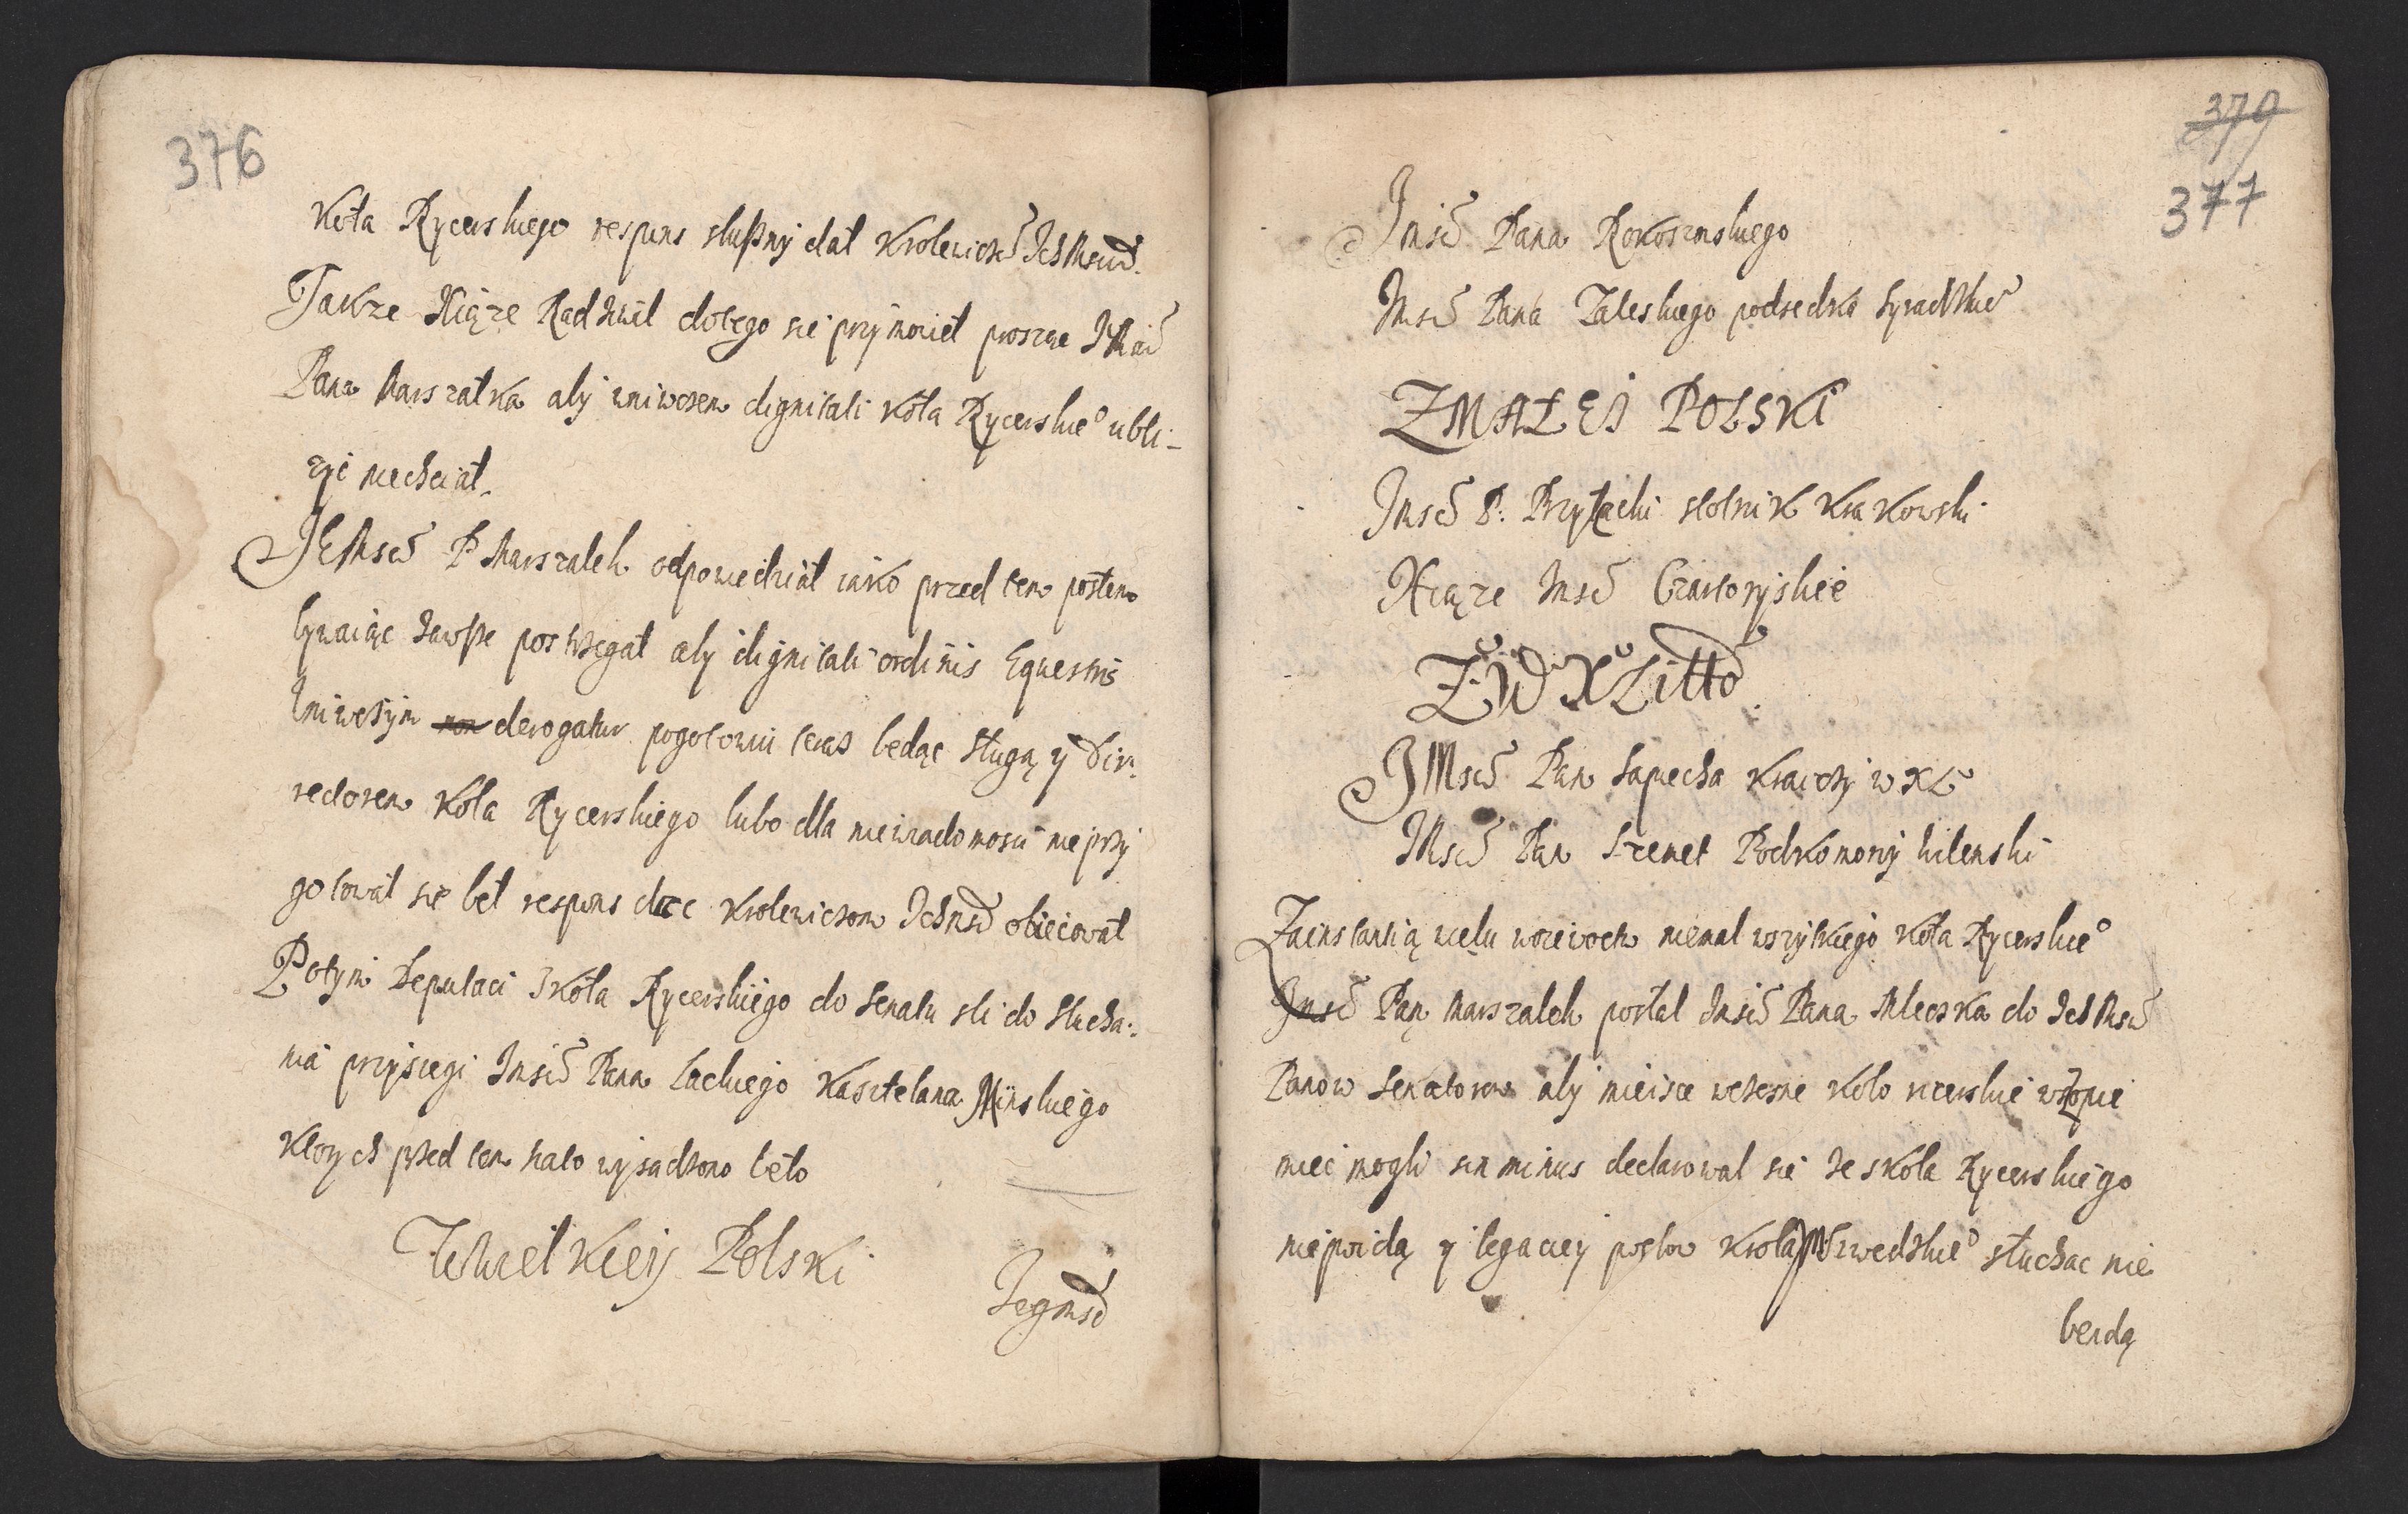 376
Koła Rycerskiego respons słuszny dał Krolewicō Ich Mśćiō.
Takze Xiąze Radziwił do tego sie przymowił prosząc JMśći
Pana Marszałka aby wniwczem dignitati Koła Rycerskie° ubli-
zyć niechciał.
JEMsć P Marszalek odpowiedział iako przed tem posłem
bywaiąc zawsze postrzegał aby dignitati ordinis Equestris
wniwczym non derogatur pogotowiu teraz będąc sługą y Dir-
rectorem Koła Rycerskiego lubo dla niewiadomosci nie przy
gotował sie beł respons dac Krolewiczom Ichmść obiecował
Potym Deputaci z Koła Rycerskiego do Senatu sli do słucha-
nia przysiegi Jmści Pana Lackiego Kasztelana Minskiego
Ktorych przed tem na to wysadzono beło
Z Wielkiey Polski
Jegmść
370
377
Jmści Pana Rokoszowskiego
Jmści Pana Zaleskiego podsedka Syradzkie°
Z MAŁEJ POLSKI
Jmść P. Przyłęcki stolnik Krakowski
Xiąze Jmść Czartoryskie
Z W X Litto
JMść Pan Sapiecha Kraiczy w X L
JMść Pan Szemet Podkomorzy Wilenski
Za instantią wielu woiewodztw niemal wszytkiego Koła Rycerskie°
Jmść Pan Marszalek posłał Jmści Pana Mleczka do Ich Mśći
Panow Senatorow aby mieisce wczesne koło ricerskie w szopie
mieć mogli sin minus declarował sie ze z koła Rycerskiego
niepoidą y legaciey posłow Krola JM Szwedzkie° słuchac nie
bendą